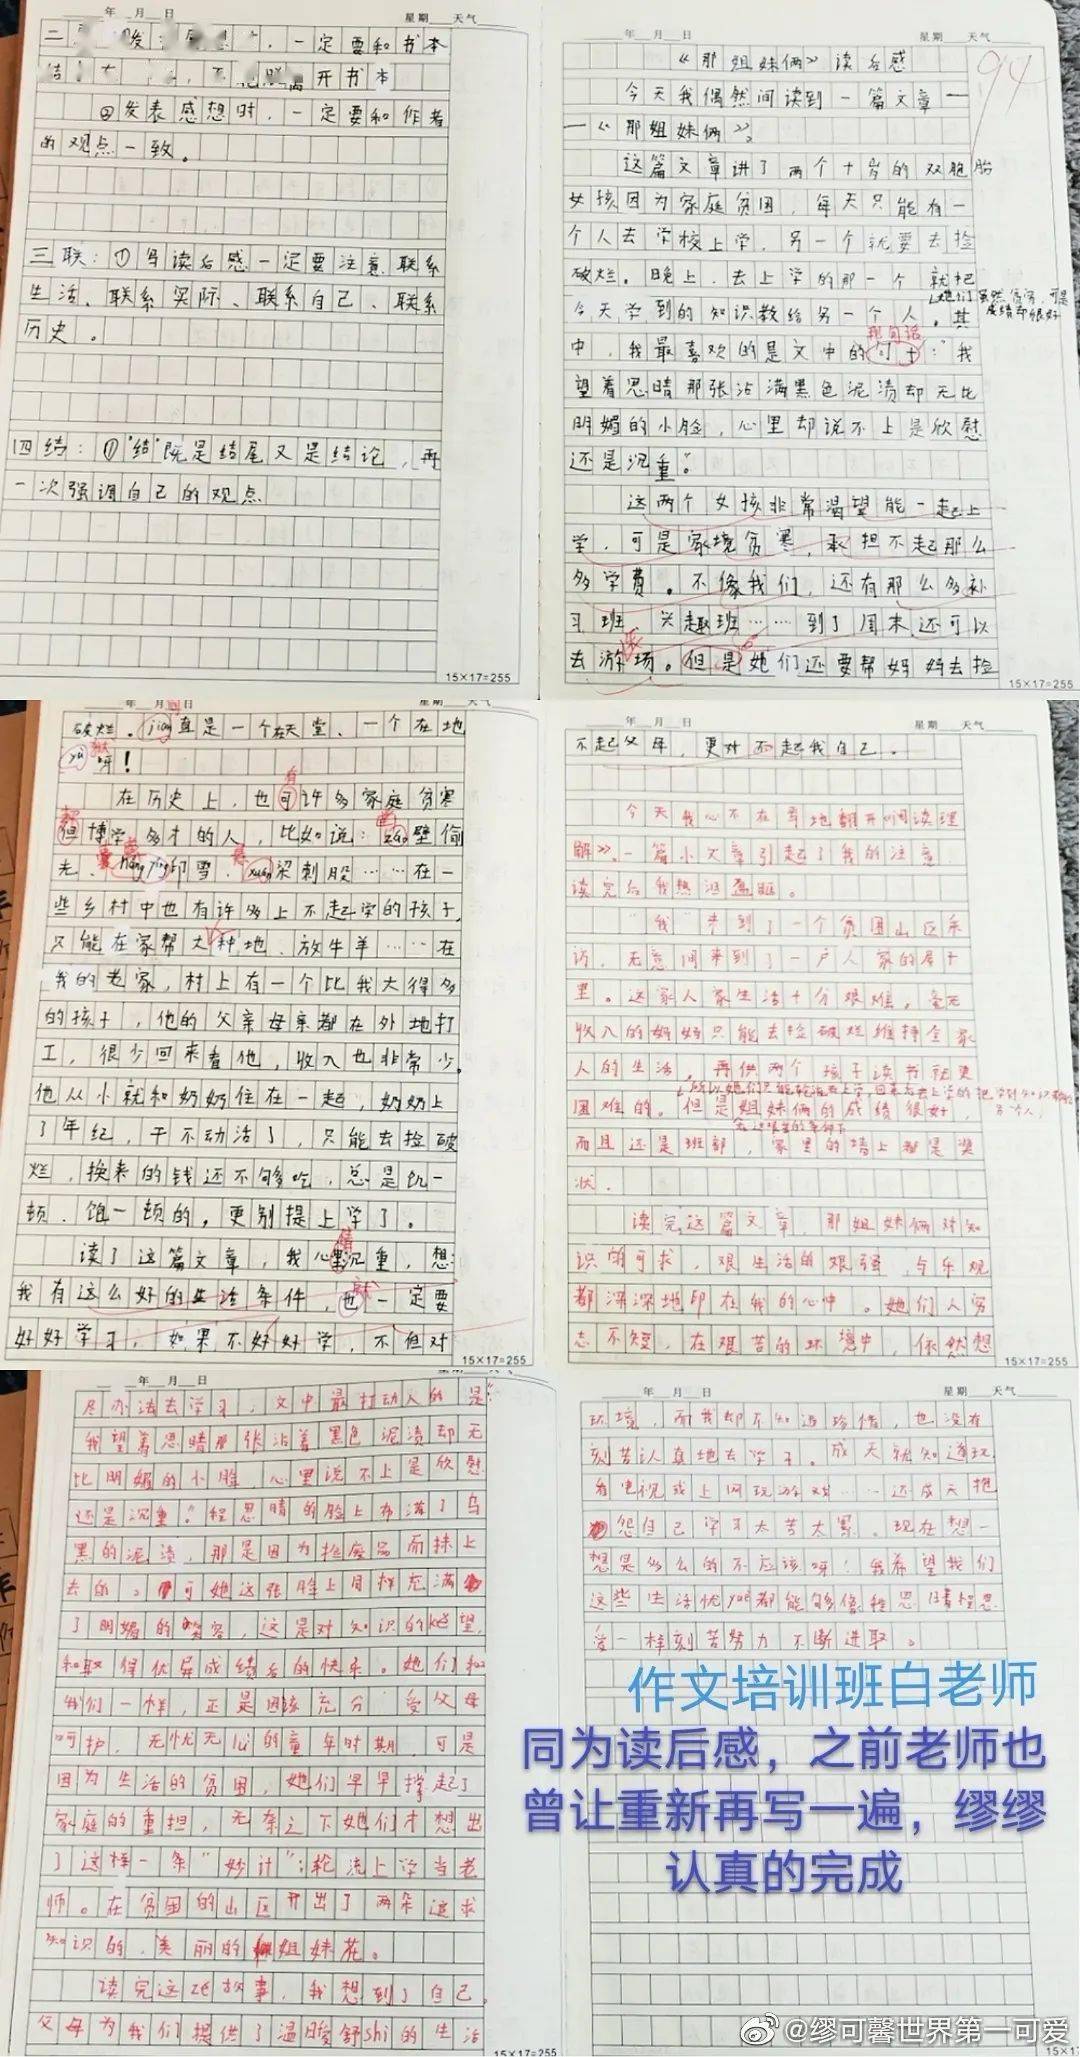 年 月 日 星期 天气
一定要和书本
开书本
②发表感想时，一定要和作者
的观点一致。
三联：①写读后感一定要注意联系
生活、联系实际、联系自己、联系
历史。
四结：①“结”既是结尾又是结论，再
一次强调自己的观点
15×17=255
年 月 日 星期 天气
94
《那姐妹俩》读后感
今天我偶然间读到一篇文章—
—《那姐妹俩》。
这篇文章讲了两个十岁的双胞胎
女孩因为家庭贫困，每天只能有一
个人去学校上学，另一个就要去捡
破烂。晚上，去上学的那一个就把
今天学到的知识教给另一个人。其
她们虽然贫穷，可是
成绩却很好
中，我最喜欢的是文中的句子：“我
望着思晴那张沾满黑色泥渍却无比
明媚的小脸，心里却说不上是欣慰
还是沉重。”
这两个女孩非常渴望能一起上
学，可是家境贫寒，承担不起那么
多学费。不像我们，还有那么多补
习班、兴趣班……到了周末还可以
去游场。但是她们还要帮妈妈去捡
15×17=255
年 月 日
破烂。jiǎn直是一个在天堂、一个在地
yù呀！
在历史上，也可许多家庭贫寒
但博学多才的人，比如说：záo壁偷
光、náng yíng印雪、xuán梁刺股……在一
些乡村中也有许多上不起学的孩子，
只能在家帮大种地、放牛羊……在
我的老家，村上有一个比我大得多
的孩子，他的父亲母亲都在外地打
工，很少回来看他，收入也非常少。
他从小就和奶奶住在一起，奶奶上
了年纪，干不动活了，只能去捡破
烂，换来的钱还不够吃，总是饥一
顿、饱一顿的，更别提上学了。
读了这篇文章，我心里沉重，想：
我有这么好的生活条件，也一定要
好好学习，如果不好好学，不但对
15×17=255
年 月 日 星期 天气
不起父母，更对不起我自己。
今天我心不在焉地翻开《阅读理
解》，一篇小文章引起了我的注意，
读完后我热泪盈眶。
“我”来到了一个贫困山区采
访，无意间来到了一户人家的屋子
里。这家人家生活十分艰难，毫无
收入的奶奶只能去捡破烂维持全家
人的生活，再供两个孩子读书就更
困难的。但是姐妹俩的成绩很好，
而且还是班部，家里的墙上都是奖
状。
读完这篇文章，那姐妹俩对知
识的可求，艰生活的艰强，与乐观
都深深地印在我的心中。她们人穷
志不短，在艰苦的环境中，依然想
15×17=255
年 月 日
尽办法去学习，文中最打动人的是“
我望着思晴那张沾着黑色泥渍却无
比明媚的小脸，心里说不上是欣慰
还是沉重。”程思晴的脸上布满了乌
黑的泥渍，那是因为捡废品而抹上
去的。可她这张脸上同样充满
了明媚的笑容，这是对知识的kě望，
和取得优异成绩后的快乐。她们和
我们一样，正是因该充分受父母
呵护，无忧无lǜ的童年时期，可是
因为生活的贫困，她们早早撑起了
家庭的重担，无奈之下她们才想出
了这样一条“妙计”：轮流上学当老
师。在贫困的山区开出了两朵追求
知识的、美丽的姐妹花。
读完这zé故事，我想到了自己。
父母为我们提供了温暖舒shì的生活
15×17=255
年 月 日 星期 天气
环境，而我却不知道珍惜，也没有
刻苦认真地去学习。成天就知道玩
看电视或上网玩游戏……还成天抱
怨自己学习太苦太累。现在想一
想是多么的不应该呀！我希望我们
这些生活优yuè都能够像程思晴程思
爱一样刻苦努力不断进取。
作文培训班白老师
同为读后感，之前老师也
曾让重新再写一遍，缪缪
认真的完成
@缪可馨世界第一可爱